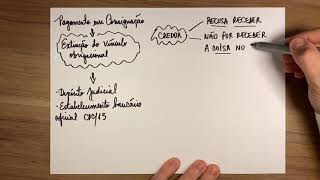 Pagamento em Consignação
Extinção do Vínculo
obrigacional
• Depósito Judicial
• Estabelecimento bancário
oficial CPC/15
CREDOR
RECUSA RECEBER
NÃO POR RECEBER
A COISA NO